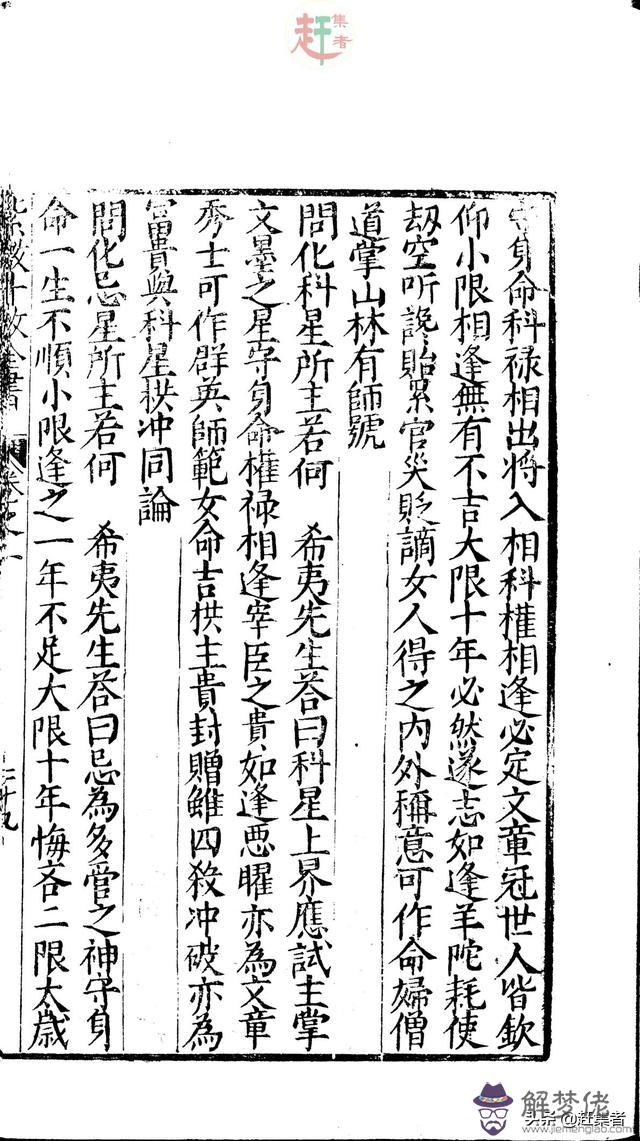 集者
赶
守身命科禄相出將入相科權相逢必定文章冠世人皆欽
仰小限相逢無有不吉大限十年必然遂志如逢羊陀耗使
劫空听讒貽累官災貶謫女人得之内外稱意可作命婦僧
道掌山林有師號
問化科星所主若何　希夷先生荅曰科星上界應試主掌
文墨之星守身命權禄相逢宰臣之貴如逢惡曜亦為文章
秀士可作群英師範女命吉拱主貴封贈雖四殺冲破亦為
富貴與科星拱冲同論
問化忌星所主若何　希夷先生荅曰忌為多管之神守身
命一生不順小限逢之一年不足大限十年悔吝二限太歲
紫微斗数全書　卷之一　二十九
解梦佬
www.jiemenglab.com
头条@赶集者